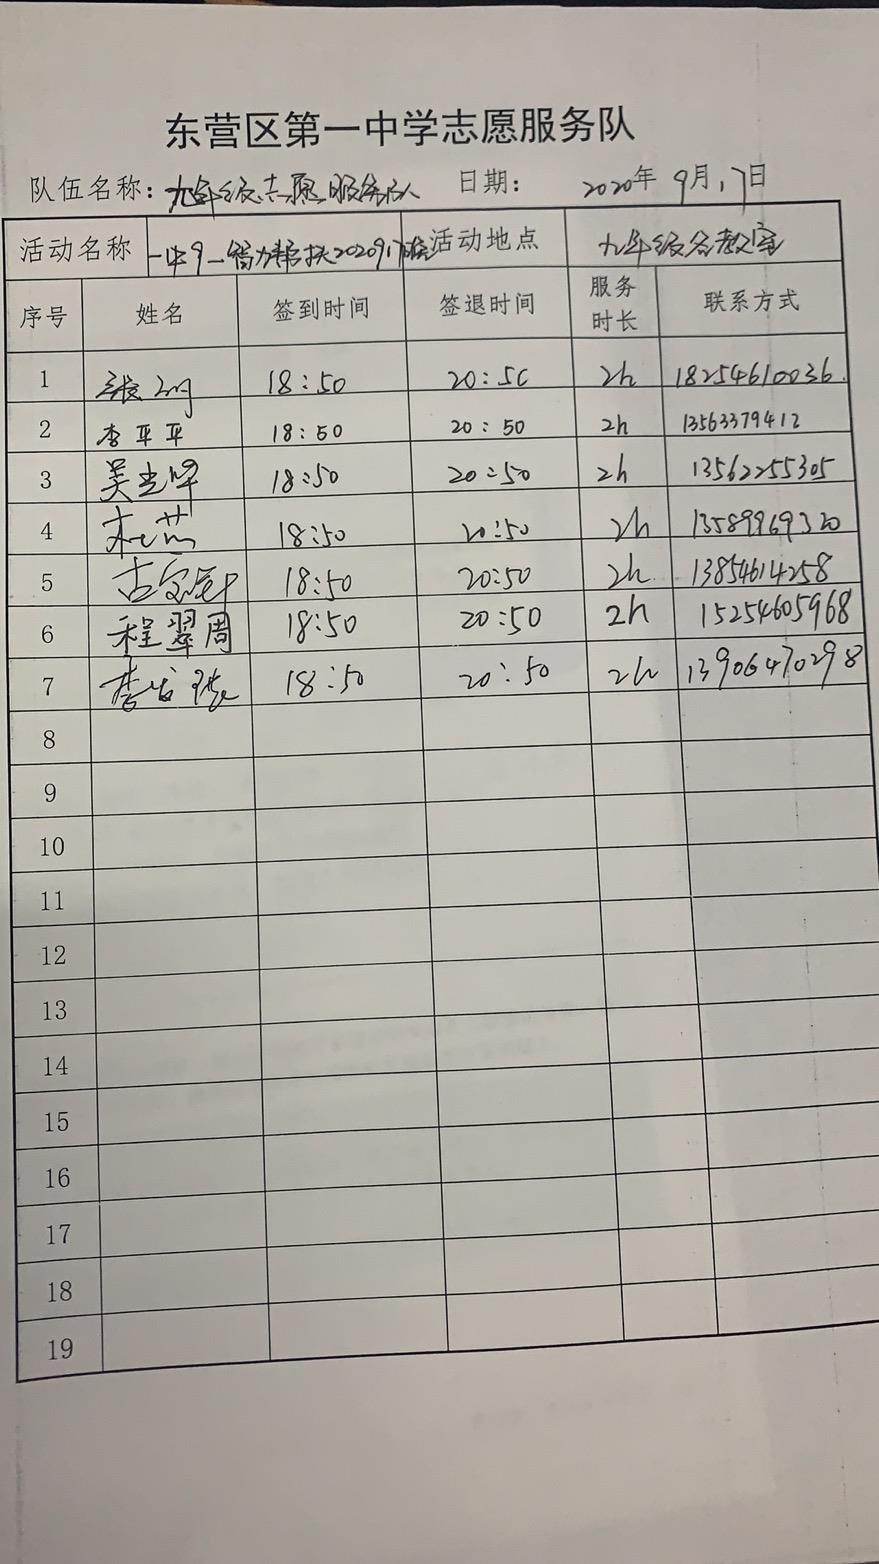 东营区第一中学志愿服务队
队伍名称：九年级志愿服务队 日期： 2020年 9月17日
活动名称 一中9_智力帮扶2020917 活动地点 九年级各教室
序号 姓名 签到时间 签退时间 服务时长 联系方式
1 18:50 20:50 2h 18254610036
2 李平平 18:50 20:50 2h 13563379412
3 吴 18:50 20:50 2h 13562255305
4 18:50 20:50 2h 13589969320
5 18:50 20:50 2h 13854614258
6 程翠周 18:50 20:50 2h 15254605968
7 李 18:50 20:50 2h 13906470298
8
9
10
11
12
13
14
15
16
17
18
19